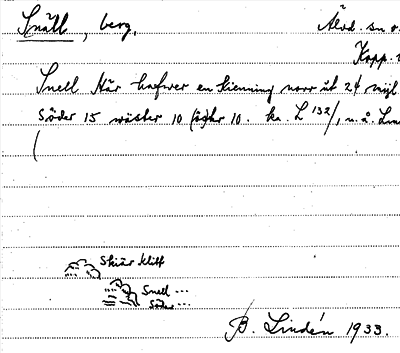 Snäll, berg.
Älvd. sn o.
Kopp. 
Snell när hafwer en kienning norr ut 2¼ mijl
Söder 15 wäster 10 öster 10. ka. L 132/, u. å. Lin
Skiär klitt
Snell ...
Söder ...
B. Lindén 1933.